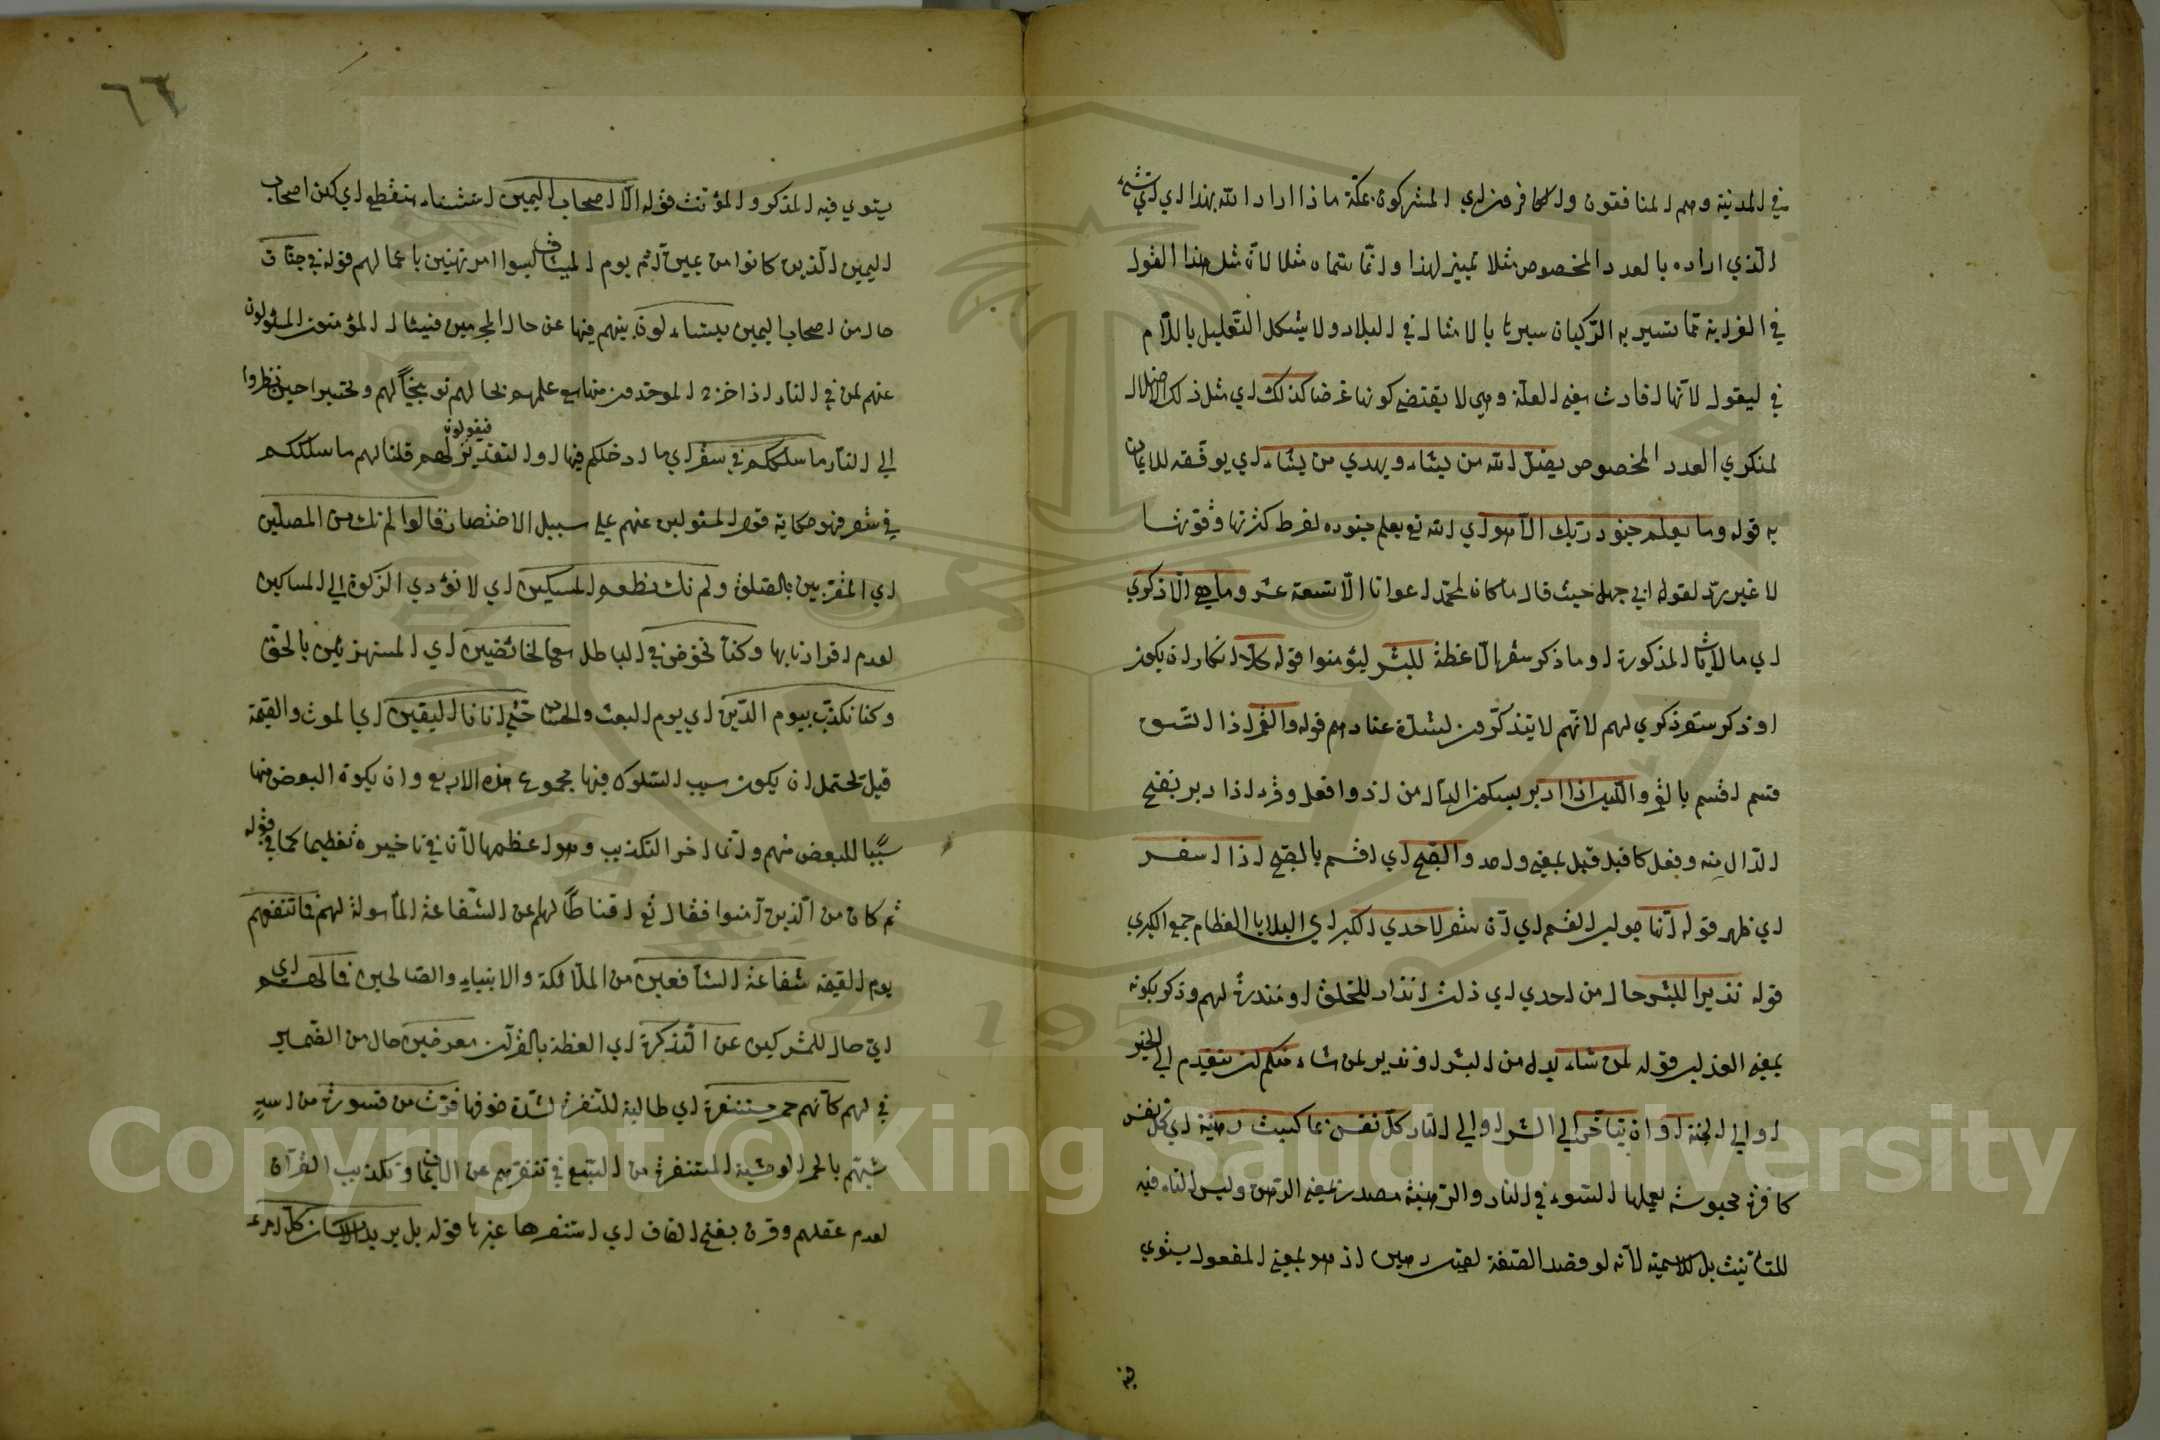 في المدينة وهم المنافقون والكافرون اي المشركون بمكة ماذا اراد الله بهذا اي اي شيء
الذي اراده بالعدد المخصوص مثلا تمييز لهذا وانما سماه مثلا لان مثل هذا القول
في الغرابة مما تسير به الركبان سيرها بالامثال في البلاد ولا يشكل التعليل باللام
في ليقول لانها افادت معنى العلة وهي لا يقتضي كونها غرضا كذلك اي مثل ذلك اضلال
لمنكري العدد المخصوص يضل الله من يشاء ويهدي من يشاء اي يوفقه للايمان
به قوله وما يعلم جنود ربك الا هو اي الله تع يعلم جنوده لفرط كثرتها وقوتها
لا غيره رد لقول ابي جهل حيث قال ما كان لمحمد اعوانا الا تسعة عشر وما هي الا ذكرى
اي ما الايات المذكورة او ما ذكر سقر الا عظة للبشر ليؤمنوا قوله كلا انكار ان يكون
او ذكر سقر ذكرى لهم لانهم لا يتذكرون لشدة عنادهم قوله والقمر اذا اتسق
قسم اقسم بالقمر والليل اذا ادبر بسكون الذال من اذ وافعل وقرء اذا دبر بفتح
الذال منه وفعل كاقبل قبل بمعنى واحد والصبح اي اقسم بالصبح اذا اسفر
اي ظهر قوله انها جواب القسم اي ان سقر لاحدى الكبر اي البلايا العظام جمع الكبرى
قوله نذيرا للبشر حال من احدى اي ذات انذار للخلق او منذرة لهم وذكر بكونه
بمعنى العذاب قوله لمن شاء بدل من البشر او نذير لمن شاء منكم ان يتقدم الى الخير
او الى الجنة او ان يتأخر الى الشر او الى النار كل نفس بما كسبت رهينة اي كل نفس
كافرة محبوسة بعملها السوء في النار والرهينة مصدر بمعنى الرهن وليس التاء فيه
للتانيث بل للاسمية لانه لو قصد الصفة لقيل رهين اذ هو بمعنى المفعول يستوي
فيه
٦٦
يستوي فيه المذكر والمؤنث قوله الا اصحاب اليمين استثناء منقطع اي لكن اصحاب
اليمين الذين كانوا من يمين آدم يوم الميثاق ليسوا امرتهنين باعمالهم قوله في جنات
حال من اصحاب اليمين يتساءلون بينهم فيها عن حال المجرمين فيسئال المؤمنون المسئولون
عنهم لمن في النار اذا خرج الموحدون منها مع علمهم بحالهم توبيخا لهم وتحسرا حين نظروا
الى النار ما سلككم في سقر اي ما ادخلكم فيها او التقدير فيقولون لهم قلنا لهم ما سلككم
في سقر فهو حكاية قول المسئولين عنهم على سبيل الاختصار قالوا لم نك من المصلين
اي المقربين بالصلوة ولم نك نطعم المسكين اي لا نؤدي الزكوة الى المساكين
لعدم اقرارنا بها وكنا نخوض في الباطل مع الخائضين اي المستهزئين بالحق
وكنا نكذب بيوم الدين اي بيوم البعث والحساب حتى اتانا اليقين اي الموت والقيمة
قيل يحتمل ان يكون سبب السلوك فيها مجموع هذه الاربع وان يكون البعض منها
سببا للبعض منهم وانما اخر التكذيب وهو اعظمها لان في تاخيره تعظيما كما في قوله
ثم كان من الذين آمنوا فقال تع اقناطا لهم عن الشفاعة المأمولة لهم فما تنفعهم
يوم القيمة شفاعة الشافعين من الملائكة والانبياء والصالحين فما لهم اي
اي حال للمشركين عن التذكرة اي العظة بالقرآن معرضين حال من الضمير
في لهم كانهم حمر مستنفرة اي طالبة للنفرة لشدة خوفها فرت من قسورة من اسد
شبههم بالحمر الوحشية المستنفرة من السبع في تنفرهم عن الايمان وتكذيب القرآن
لعدم عقلهم وقرئ بفتح الفاف اي استنفرها غيرها قوله بل يريد كل امرء
Copyright © King Saud University
1957